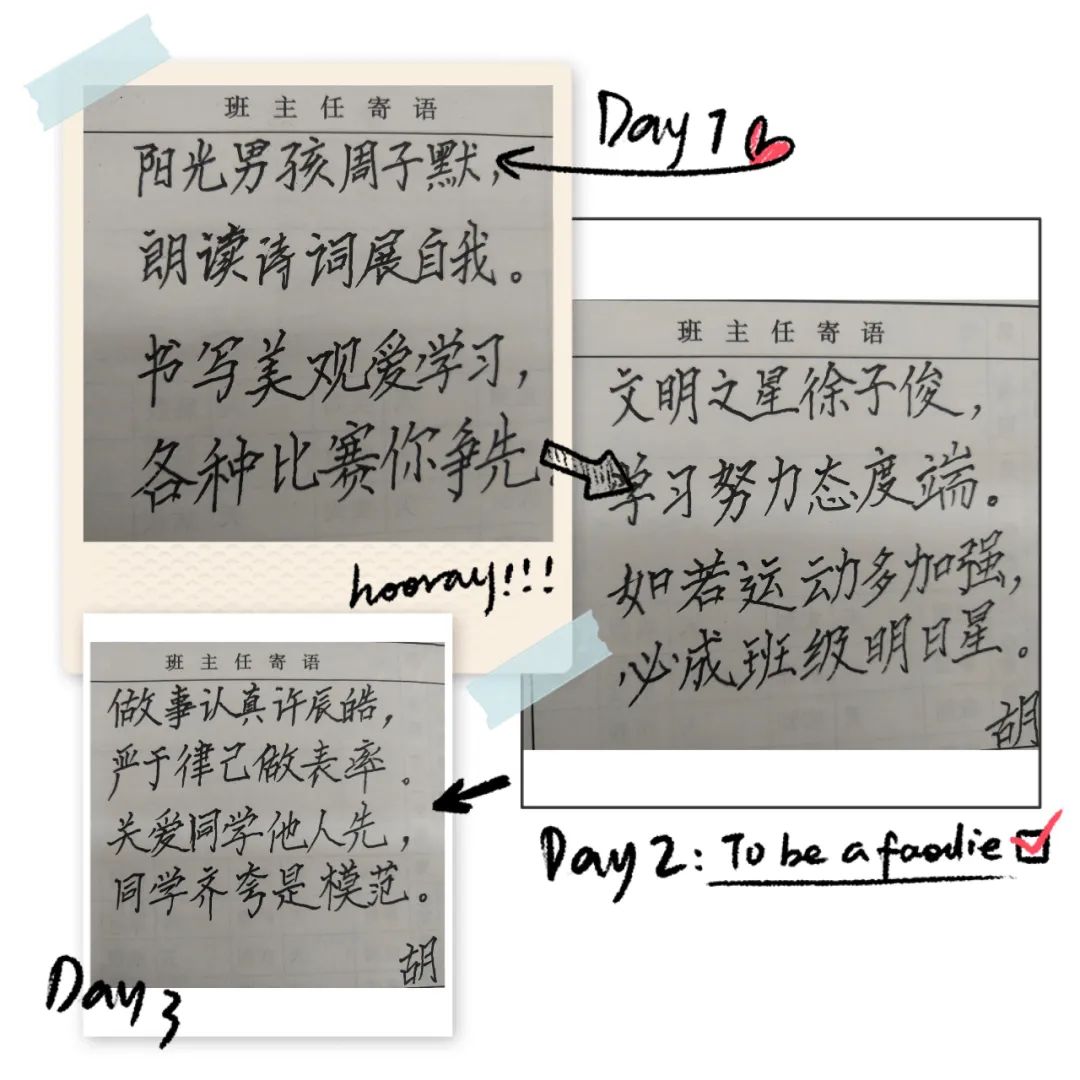 班主任寄语
阳光男孩周子默，
朗读诗词展自我。
书写美观爱学习，
各种比赛你争先.
hooray!!!
Day 1
班主任寄语
文明之星徐子俊，
学习努力态度端。
如若运动多加强，
必成班级明日星。
胡
Day 2: To be a foodie
班主任寄语
做事认真许辰皓，
严于律己做表率。
关爱同学他人先，
同学齐夸是模范。
胡
Day 3